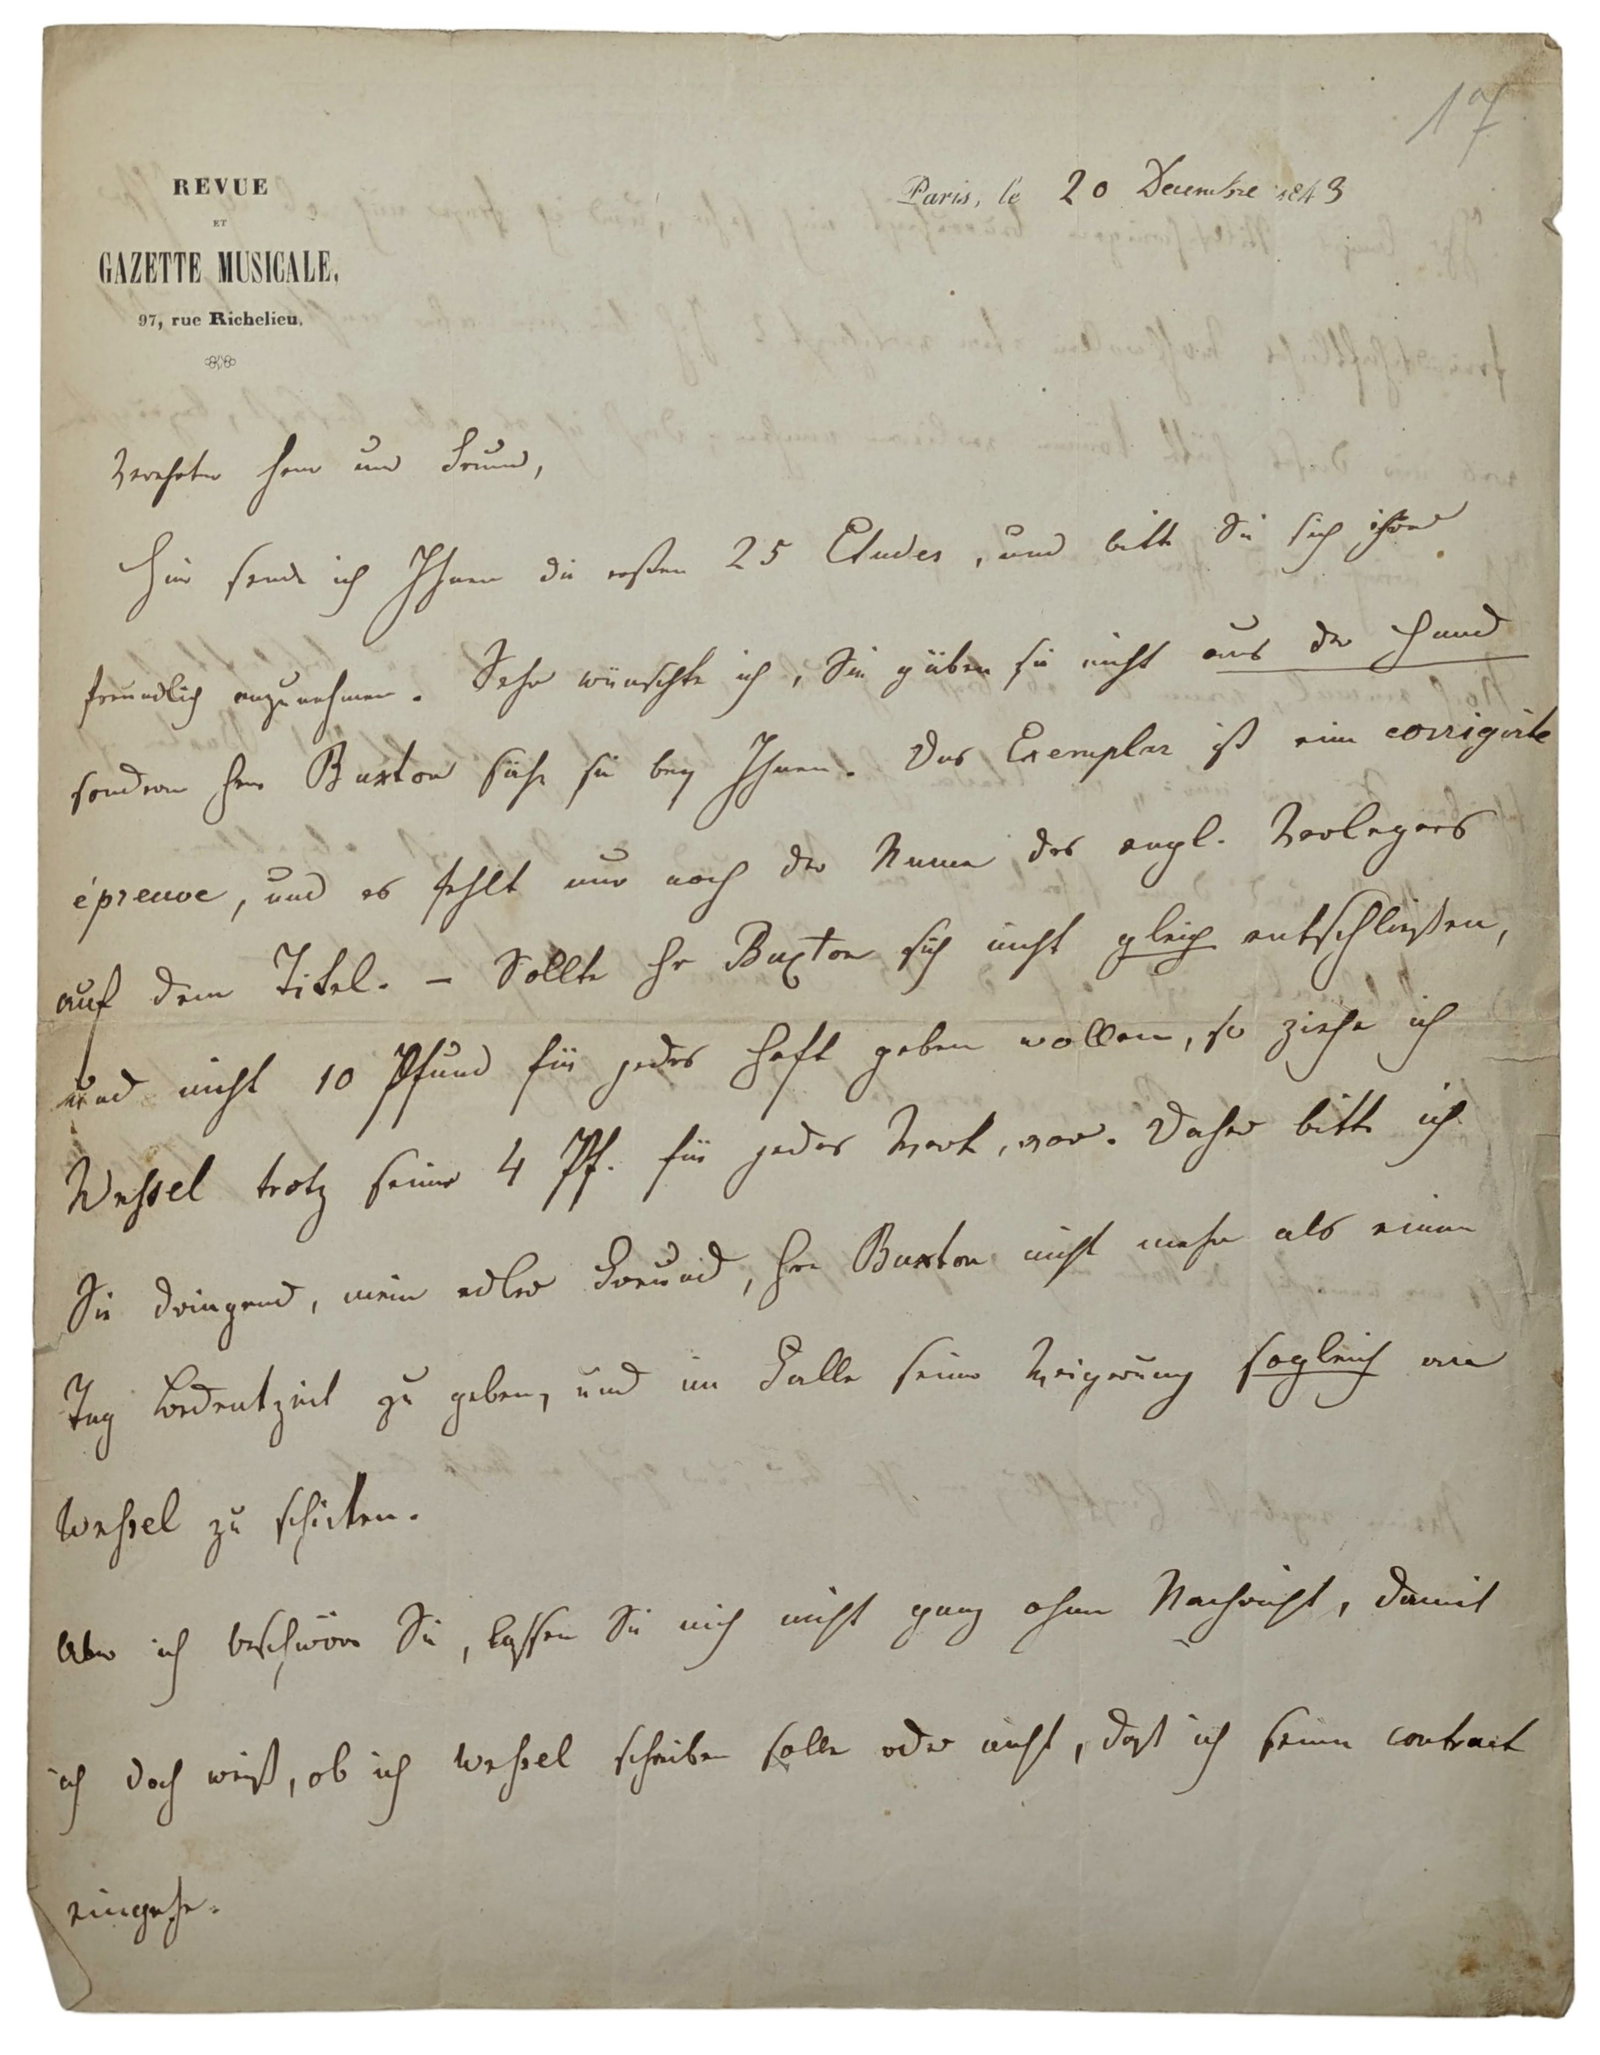 17
REVUE
ET
GAZETTE MUSICALE,
97, rue Richelieu.
Paris, le 20 Decembre 1843
Verehrter Herr und Freund,
Hier sende ich Ihnen die ersten 25 Etudes, und bitte Sie sich ihrer
freundlich anzunehmen. Sehr wünschte ich, Sie gäben sie nicht aus der Hand
sondern Herr Buxton sähe sie bey Ihnen. Das Exemplar ist eine corrigirte
épreuve, und es fehlt nur noch der Name des engl. Verlegers
auf dem Titel. – Sollte Hr Buxton sich nicht gleich entschließen,
und nicht 10 Pfund für jedes Heft geben wollen, so ziehe ich
Wessel trotz seiner 4 Pf. für jedes Werk, vor. Daher bitte ich
Sie dringend, mein edler Freund, Hrn Buxton nicht mehr als einen
Tag Bedenkzeit zu geben, und im Falle seiner Weigerung sogleich an
Wessel zu schicken.
Aber ich beschwöre Sie, lassen Sie mich nicht ganz ohne Nachricht, damit
ich doch weiß, ob ich Wessel schreiben solle oder nicht, daß ich seinen contract
eingehe.